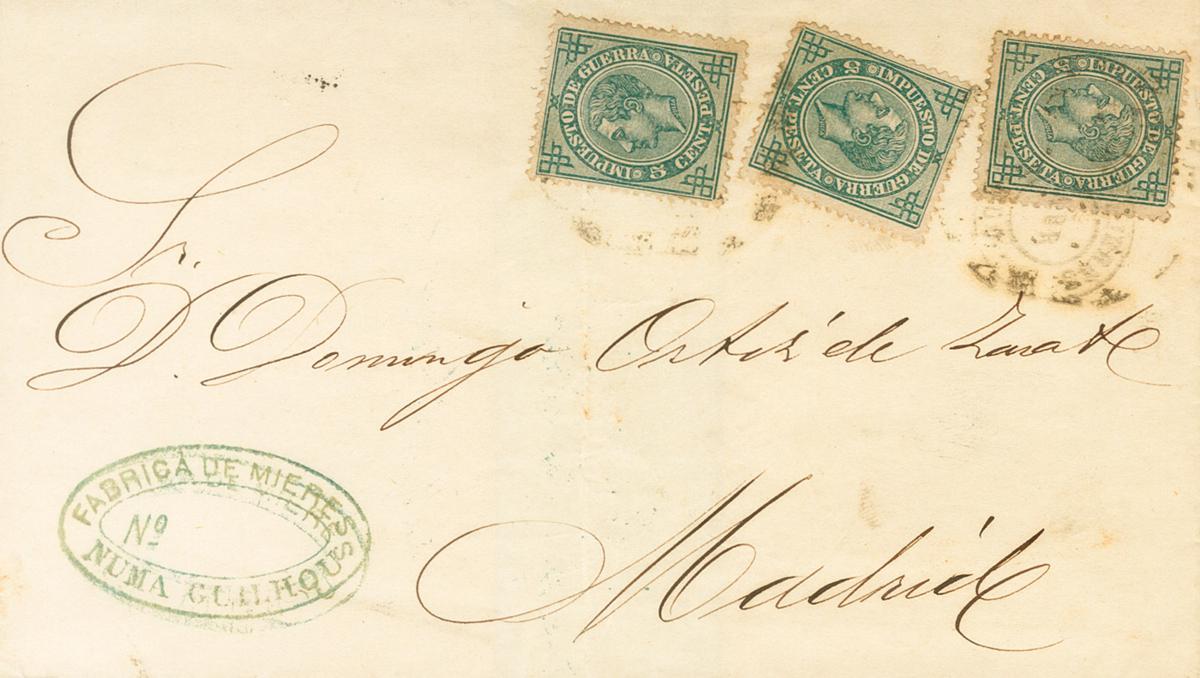 IMPUESTO DE GUERRA
5 CENT. PESETA
IMPUESTO DE GUERRA
5 CENT. PESETA
IMPUESTO DE GUERRA
5 CENT. PESETA
Sr.
D. Domingo Ortiz de Zarate
Madrid
FABRICA DE MIERES
Nº
NUMA GUILHOU